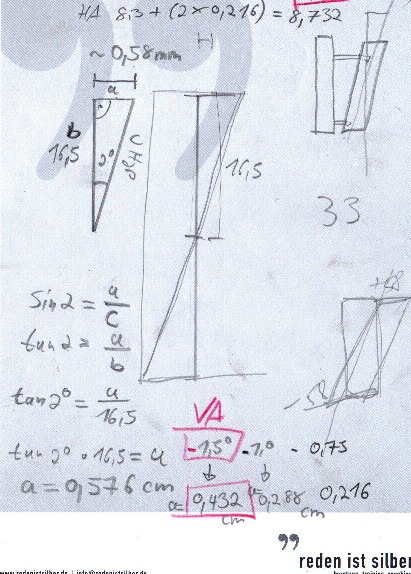 HA 8,3 + (2 x 0,216) = 8,732
~ 0,58 mm
H
a
b
16,5
2°
Hyp
16,5
33
sin α = a/c
tan α = a/b
tan 2° = a/16,5
VA
tan 2° · 16,5 = a
-1,5° -1,0° - 0,75
a = 0,576 cm
a= 0,432 cm
a= 0,288 cm
0,216
”
reden ist silber
www.redenistsilber.de | info@redenistsilber.de